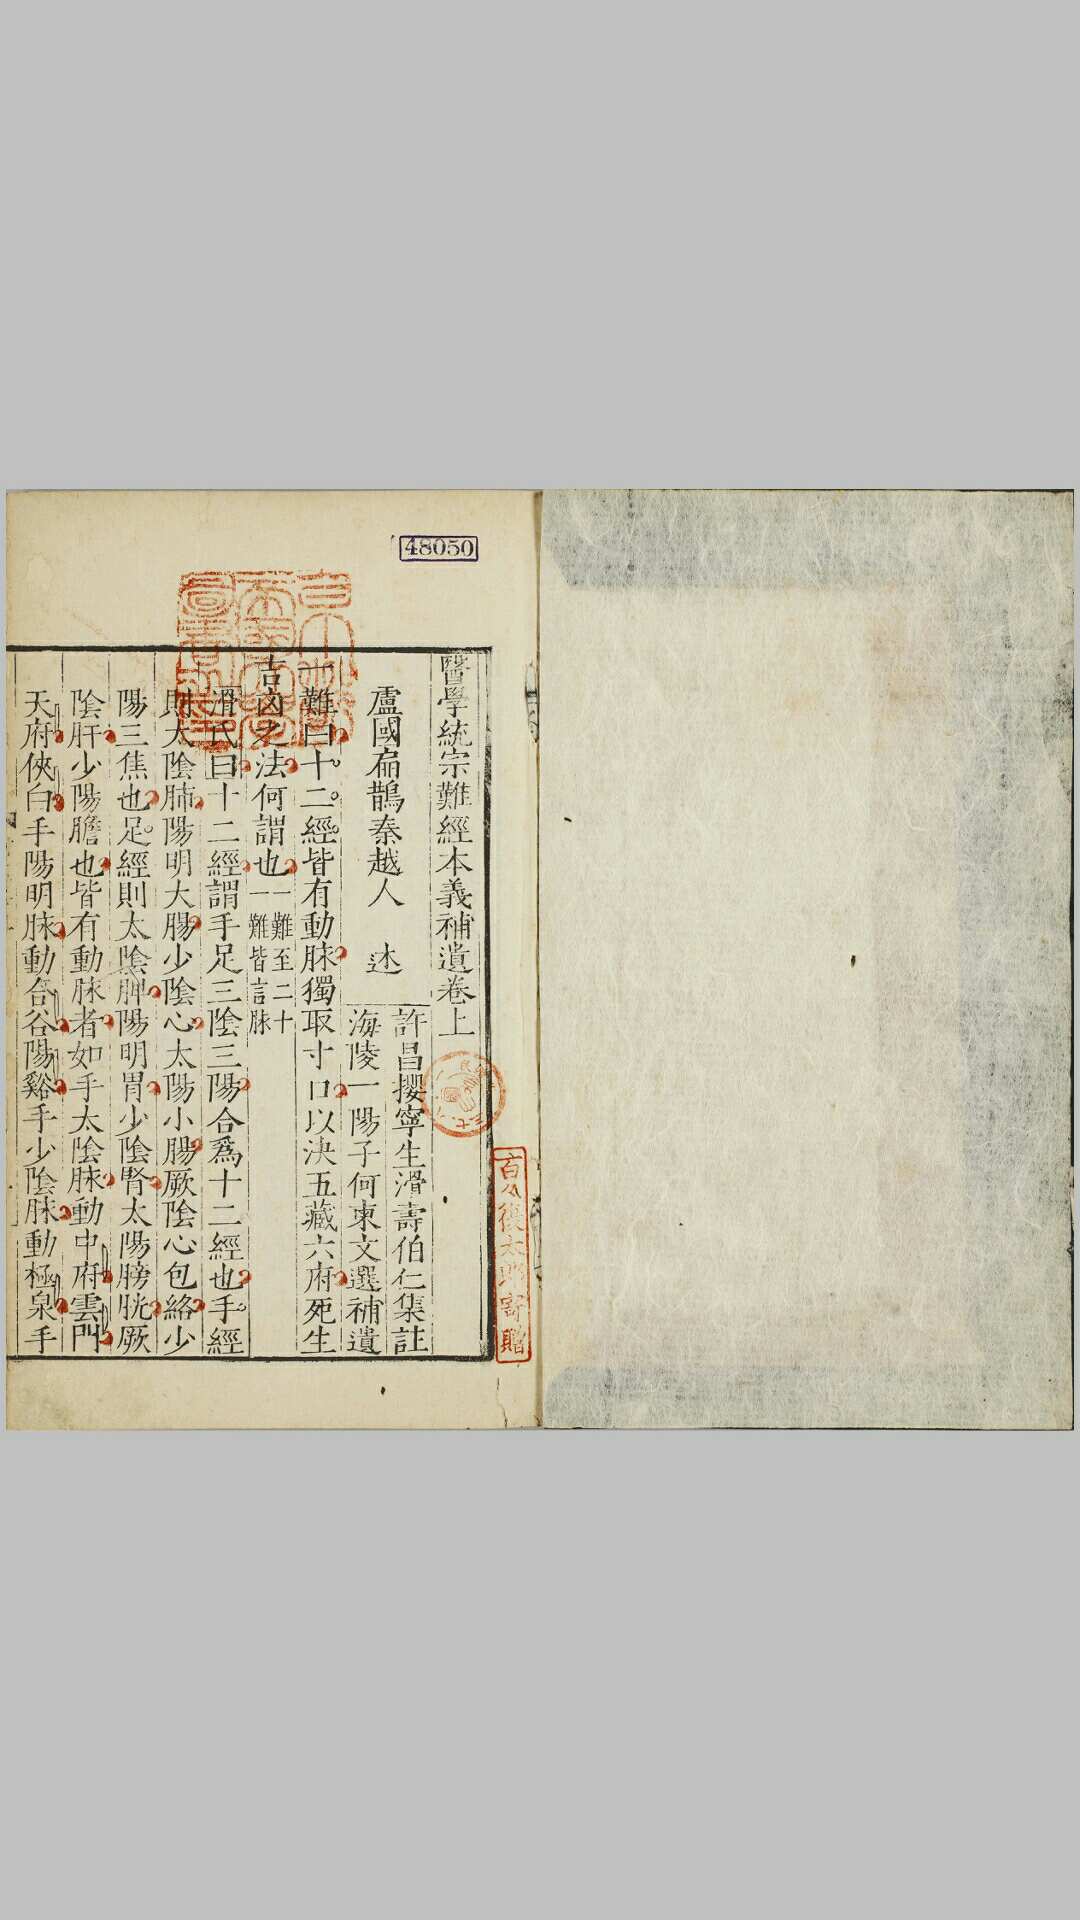 48050
醫學統宗難經本義補遺卷上
盧國扁鵲秦越人 述
許昌攖寧生滑壽伯仁集註
海陵一陽子何柬文選補遺
一難曰十二經皆有動脉獨取寸口以決五藏六府死生
吉凶之法何謂也一難至二十
一難皆言脉
滑氏曰十二經謂手足三陰三陽合爲十二經也手經
則太陰肺陽明大腸少陰心太陽小腸厥陰心包絡少
陽三焦也足經則太陰脾陽明胃少陰腎太陽膀胱厥
陰肝少陽膽也皆有動脉者如手太陰脉動中府雲門
天府俠白手陽明脉動合谷陽谿手少陰脉動極泉手
寄贈